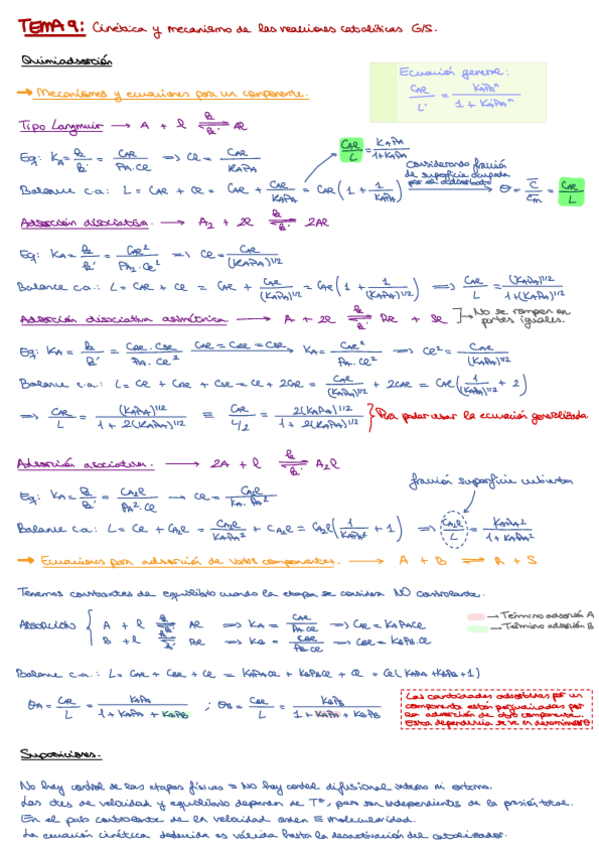 TEMA 9: Cinética y mecanismo de las reacciones catalíticas G/S.
Quimiadsorción
Ecuación general:
CAl / L' = KAPA^n / 1 + KAPA^n
→ Mecanismos y ecuaciones para un componente.
Tipo Langmuir → A + l ⇌ Al
CAl / L = KAPA / 1+KAPA
Eq: KA = k / k' = CAl / PA·Cl ⇒ Cl = CAl / KAPA
Considerando fracción de superficie ocupada por el adsorbato
Balance c.a.: L = CAl + Cl = CAl + CAl / KAPA = CAl (1 + 1 / KAPA) → θ = C / Cm = CAl / L
Adsorción disociativa. → A2 + 2l ⇌ 2Al
Eq: KA = k / k' = CAl² / PA2·Cl² ⇒ Cl = CAl / (KAPA)^1/2
Balance c.a.: L = CAl + Cl = CAl + CAl / (KAPA)^1/2 = CAl (1 + 1 / (KAPA)^1/2) ⇒ CAl / L = (KAPA)^1/2 / 1+(KAPA)^1/2
Adsorción disociativa asimétrica → A + 2l ⇌ Rl + Sl → No se rompen en partes iguales.
Balance c.a.: L = Cl + CRl + CSl = Cl + 2CAl = CAl / (KAPA)^1/2 + 2CAl = CAl (1 / (KAPA)^1/2 + 2)
⇒ CAl / L = (KAPA)^1/2 / 1 + 2(KAPA)^1/2 ≡ CAl / L/2 = 2(KAPA)^1/2 / 1 + 2(KAPA)^1/2 } Para poder usar la ecuación generalizada
Adsorción asociativa. → 2A + l ⇌ A2l
fracción superficie cubierta
Eq: KA = k / k' = CA2l / PA²·Cl → Cl = CA2l / KA·PA²
Balance c.a.: L = Cl + CA2l = CA2l / KAPA² + CA2l = CA2l (1 / KAPA² + 1) ⇒ CA2l / L = KAPA² / 1 + KAPA²
→ Ecuaciones para adsorción de varios componentes. → A + B ⇌ R + S
Tenemos constantes de equilibrio cuando la etapa se considera NO controlante.
→ Término adsorción A
→ Término adsorción B
ADSORCIÓN { A + l ⇌ Al ⇒ KA = CAl / PA·Cl ⇒ CAl = KAPACl
B + l ⇌ Bl ⇒ KB = CBl / PB·Cl ⇒ CBl = KBPB·Cl
Balance c.a.: L = CAl + CBl + Cl = KAPACl + KBPBCl + Cl = Cl (KAPA + KBPB + 1)
θA = CAl / L = KAPA / 1 + KAPA + KBPB ; θB = CBl / L = KBPB / 1 + KAPA + KBPB
Las cantidades adsorbidas por un
componente están perjudicadas por
la adsorción de otro componente.
Esta dependencia se ve en denominador
Suposiciones.
No hay control de las etapas físicas = No hay control difusional interno ni externo.
Las ctes de velocidad y equilibrio dependen de Tª, pero son independientes de la presión total.
En el paso controlante de la velocidad orden ≡ molecularidad.
La ecuación cinética deducida es válida hasta la desactivación del catalizador.